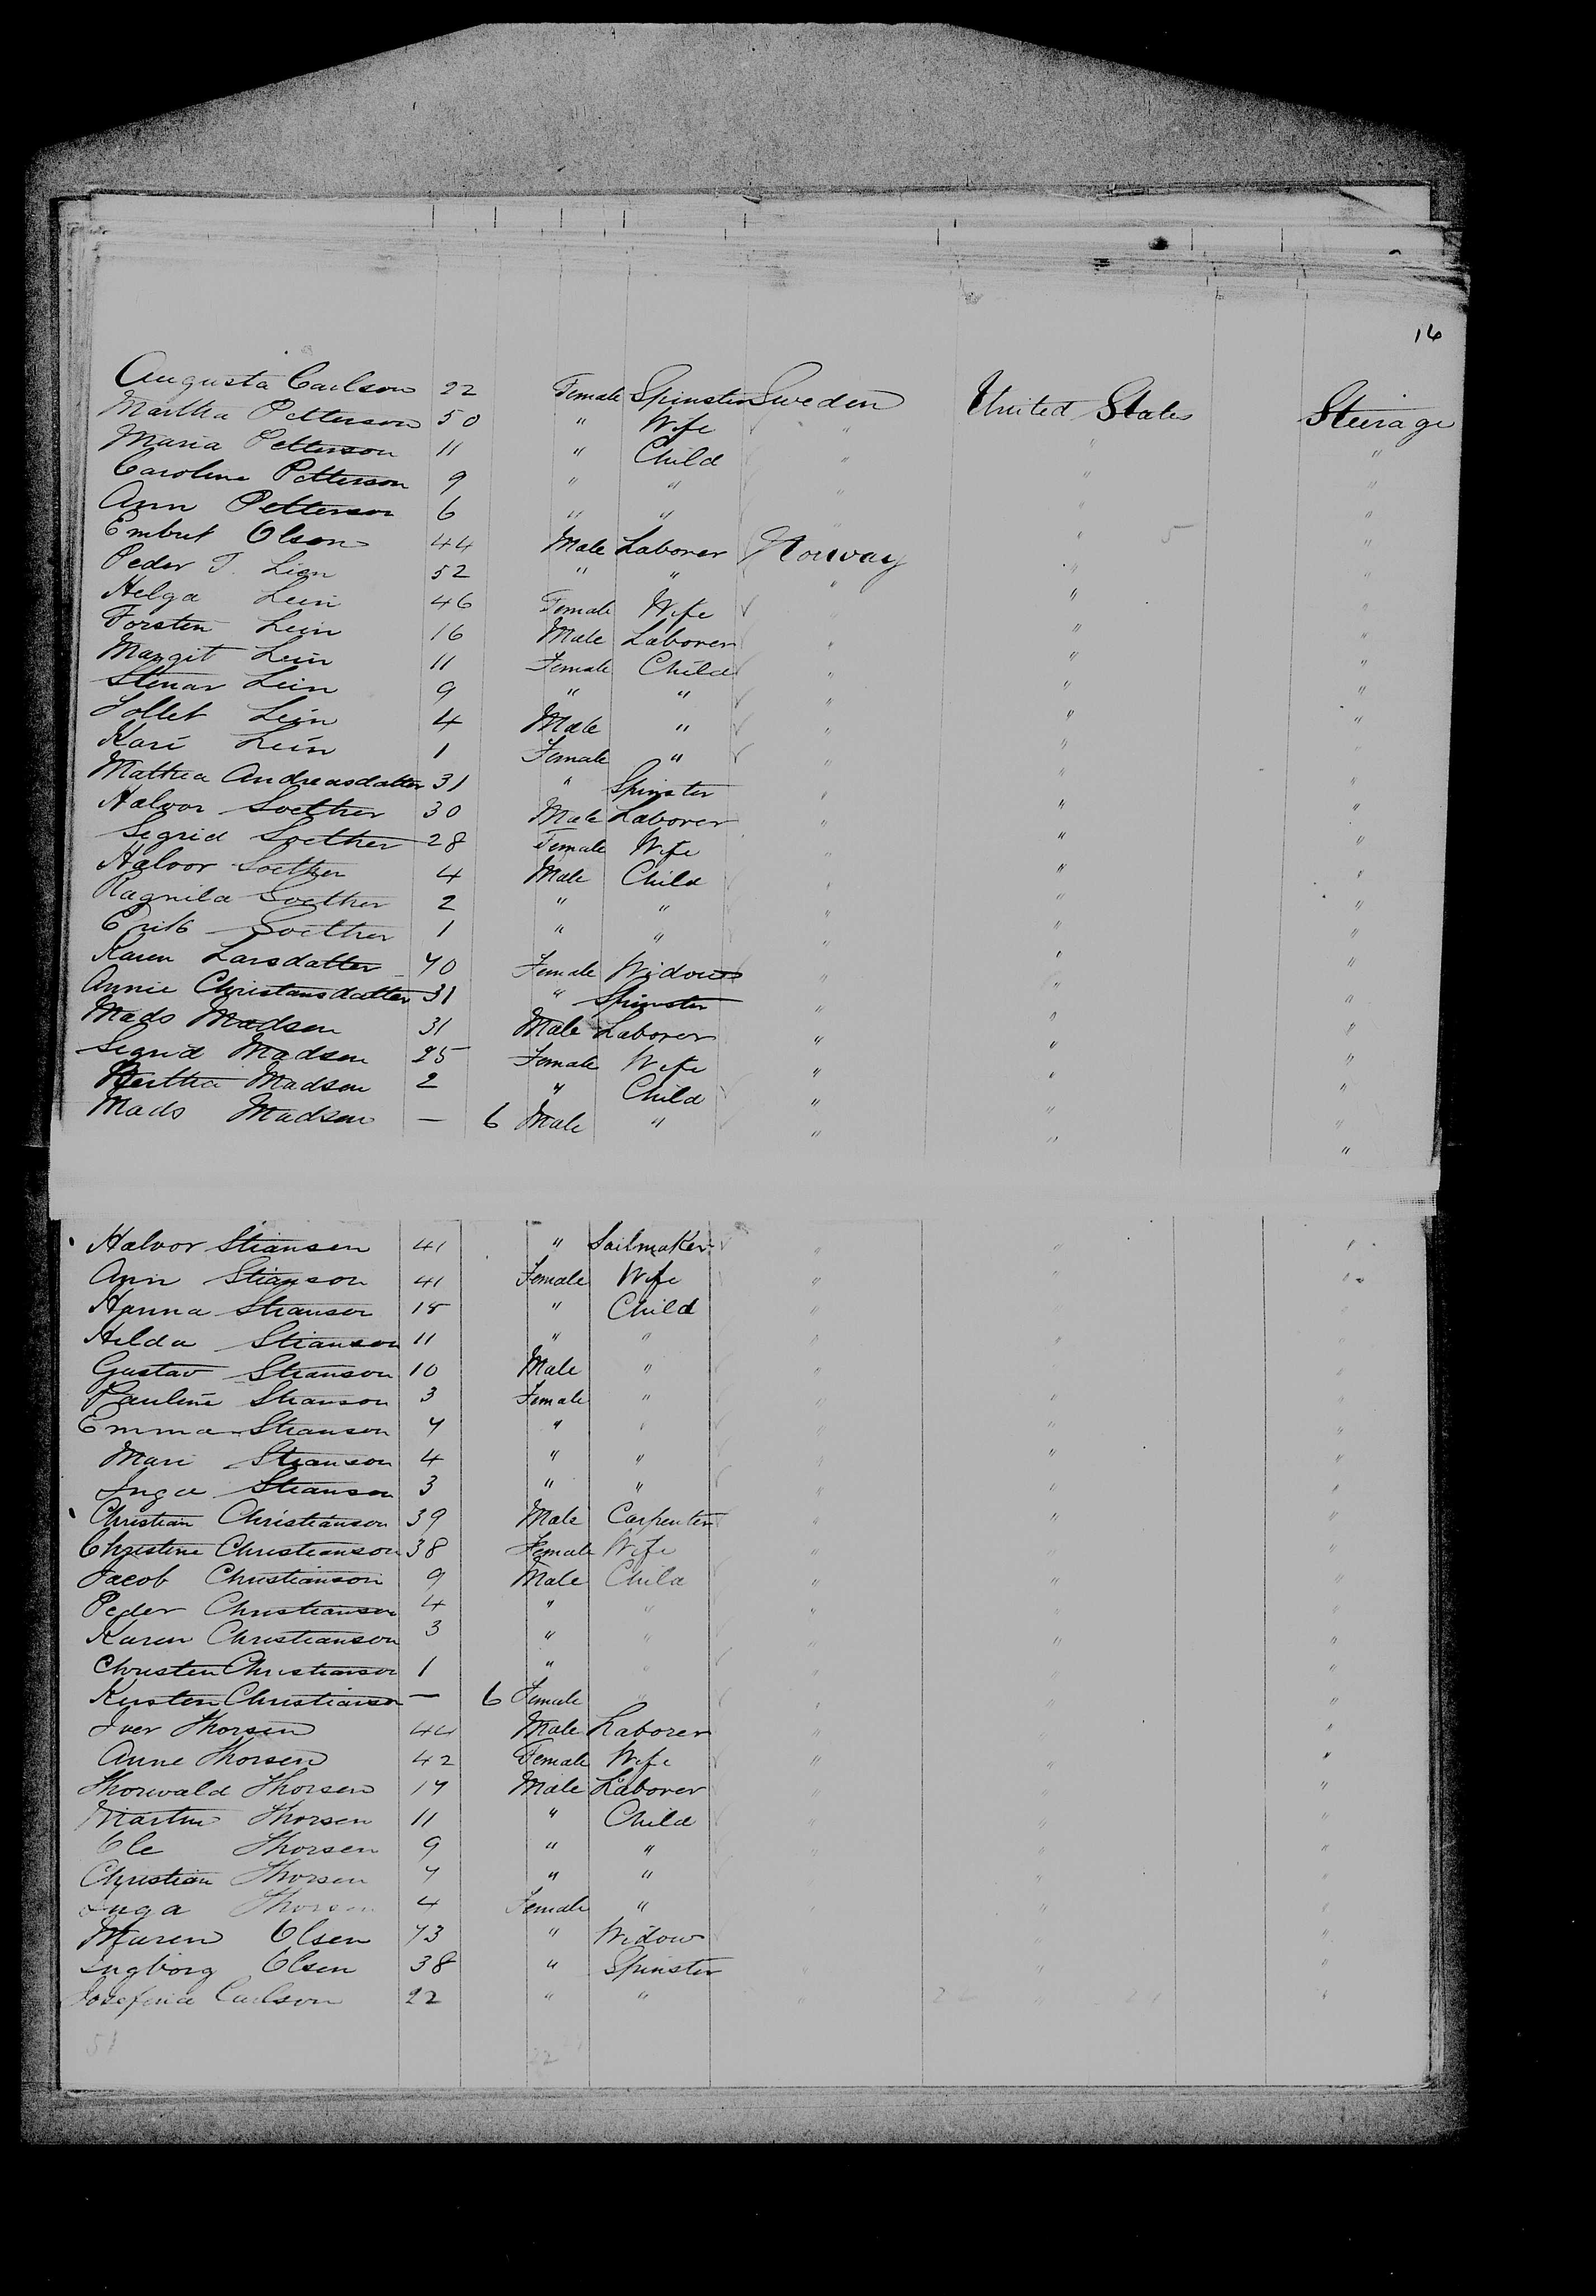 16
Augusta Carlson 22 Female Spinster Sweden United States Steerage
Martha Petterson 50 " Wife " " "
Maria Petterson 11 " Child " " "
Caroline Petterson 9 " " " " "
Ann Petterson 6 " " " " "
Embret Olson 44 Male Laborer Norway " 5 "
Peder T. Lien 52 " " " " "
Helga Lein 46 Female Wife " " "
Torsten Lein 16 Male Laborer " " "
Margit Lein 11 Female Child " " "
Stenar Lein 9 " " " " "
Tollef Lein 4 Male " " " "
Kari Lein 1 Female " " " "
Mathea Andreasdatter 31 " Spinster " " "
Halvor Soether 30 Male Laborer " " "
Segrid Soether 28 Female Wife " " "
Halvor Soether 4 Male Child " " "
Ragnila Soether 2 " " " " "
Erik Soether 1 " " " " "
Karen Larsdatter 70 Female Widow " " "
Annie Christansdatter 31 " Spinster " " "
Mads Madsen 31 Male Laborer " " "
Segrid Madsen 25 Female Wife " " "
Bertha Madsen 2 " Child " " "
Mads Madsen — 6 Male " " " "
Halvor Stiansen 41 " Sailmaker " " "
Ann Stianson 41 Female Wife " " "
Hanna Stianson 18 " Child " " "
Hilda Stianson 11 " " " " "
Gustav Stianson 10 Male " " " "
Pauline Stianson 3 Female " " " "
Emma Stianson 7 " " " " "
Mari Stianson 4 " " " " "
Inga Stianson 3 " " " " "
Christian Christianson 39 Male Carpenter " " "
Christine Christianson 38 Female Wife " " "
Jacob Christianson 9 Male Child " " "
Peder Christianson 4 " " " " "
Karen Christianson 3 " " " " "
Christen Christianson 1 " " " " "
Kirsten Christianson — 6 Female " " " "
Iver Thorsen 44 Male Laborer " " "
Anne Thorsen 42 Female Wife " " "
Thorwald Thorsen 17 Male Laborer " " "
Martin Thorsen 11 " Child " " "
Ole Thorsen 9 " " " " "
Christian Thorsen 7 " " " " "
Inga Thorsen 4 Female " " " "
Maren Olsen 73 " Widow " " "
Ingborg Olsen 38 " Spinster " " "
Josefina Carlson 22 " " " " "
51 22